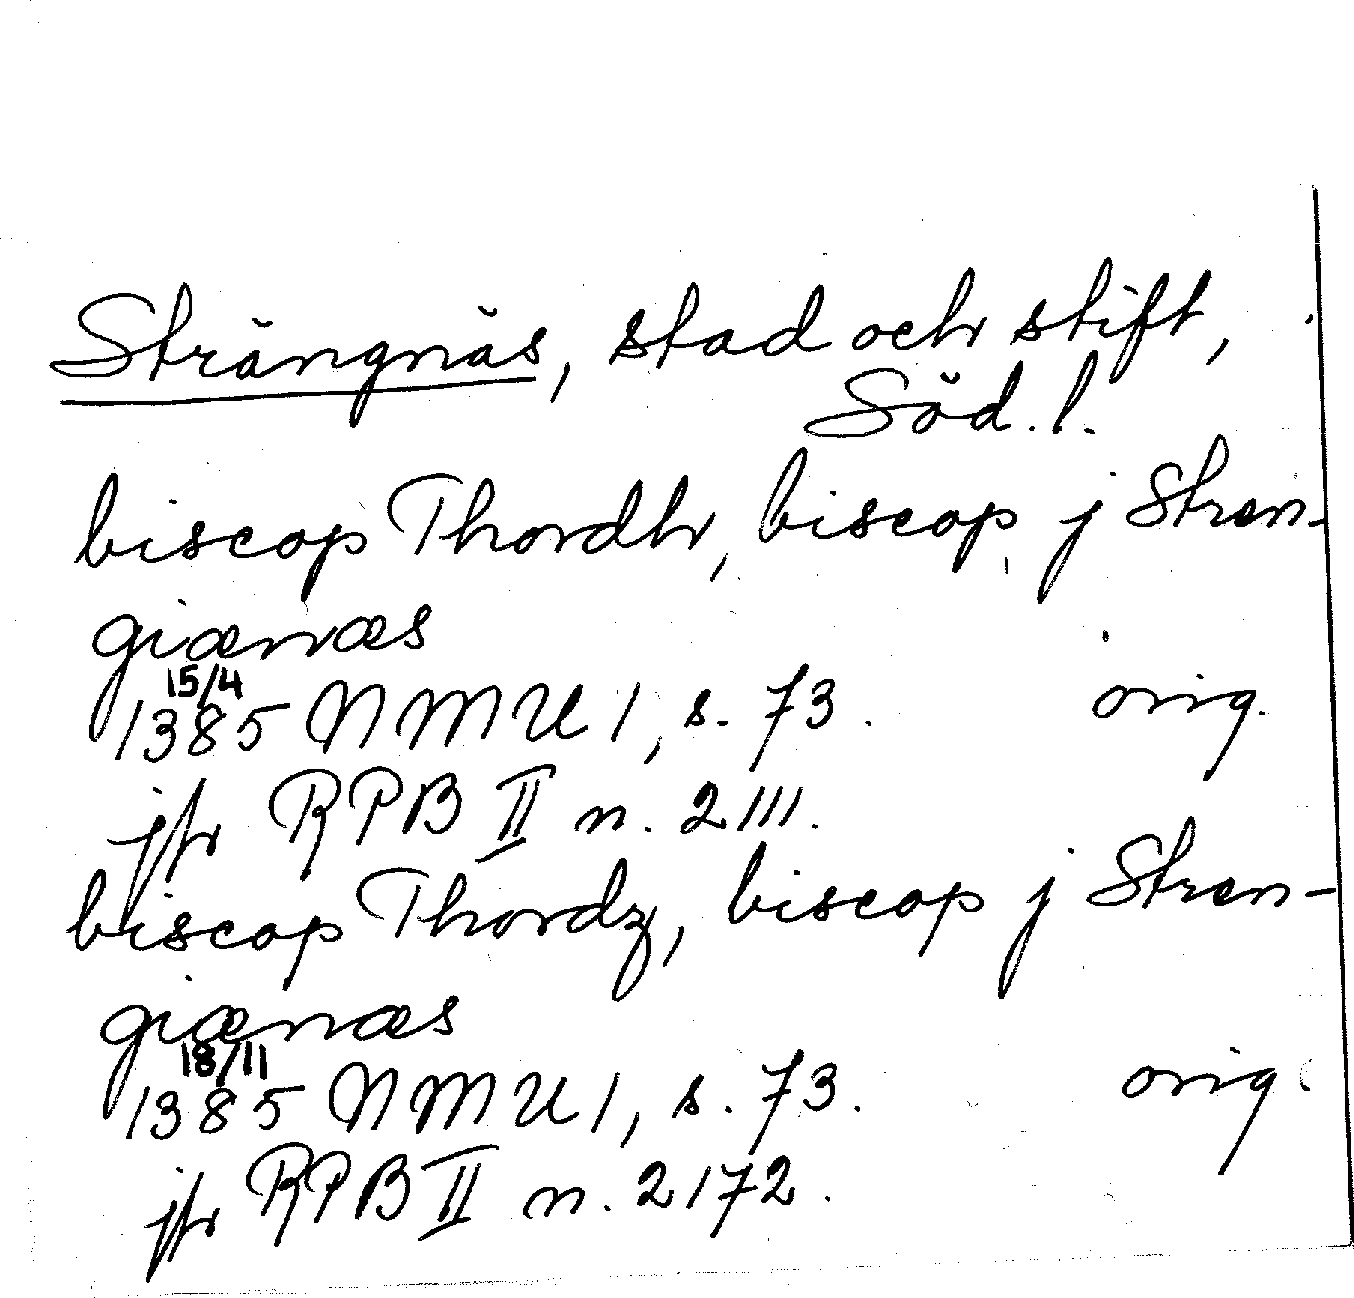 Strängnäs, stad och stift,
Söd. l.
biscop Thordhr, biscop j Stren-
giænæs
15/4
1385 NMU 1, s. 73. orig.
jfr RPB II n. 2111.
biscop Thordz, biscop j Stren-
giænæs
18/11
1385 NMU 1, s. 73. orig.
jfr RPB II n. 2172.